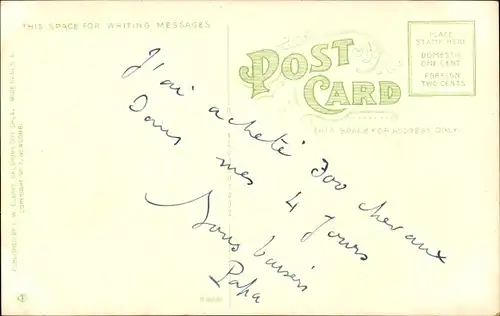 THIS SPACE FOR WRITING MESSAGES
POST CARD
PLACE
STAMP HERE
DOMESTIC
ONE CENT
FOREIGN
TWO CENTS
THIS SPACE FOR ADDRESS ONLY
J'ai acheté 300 chevaux
Dans mes 4 jours
Bons baisers
Papa